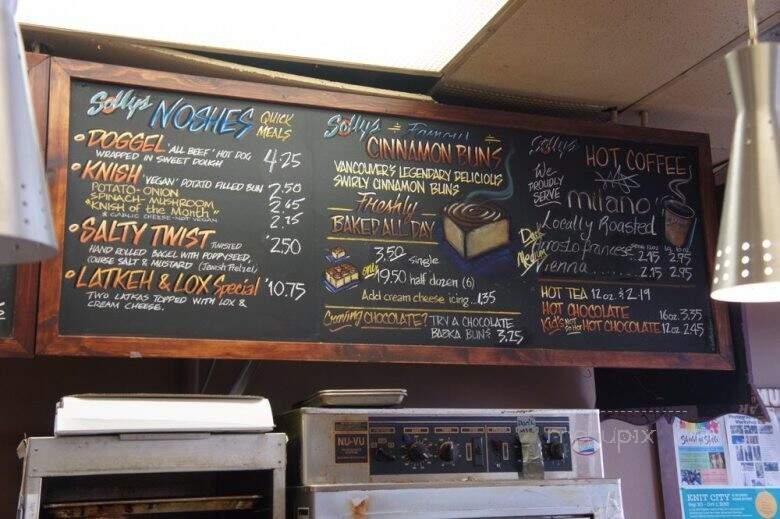 Solly's NOSHES QUICK MEALS
DOGGEL 'ALL BEEF' HOT DOG
WRAPPED IN SWEET DOUGH 4.25
KNISH 'VEGAN' POTATO FILLED BUN
POTATO-ONION 2.50
SPINACH-MUSHROOM 2.65
"KNISH OF the MONTH" 2.75
& GARLIC CHEESE-NOT VEGAN
SALTY TWIST TWISTED 2.50
HAND ROLLED BAGEL WITH POPPYSEED,
COURSE SALT & MUSTARD (Jewish Pretzel)
LATKEH & LOX Special 10.75
TWO LATKAS TOPPED WITH LOX &
CREAM CHEESE.
Solly's Famous
CINNAMON BUNS
VANCOUVER'S LEGENDARY DELICIOUS
SWIRLY CINNAMON BUNS
Freshly
BAKED ALL DAY
3.50 single
only 19.50 half dozen (6)
Add cream cheese icing.. 1.35
Craving CHOCOLATE? TRY A CHOCOLATE
BABKA BUNS 3.25
Solly's HOT COFFEE
We
PROUDLY
SERVE
milano
Locally Roasted
Dark Arosto francese 2.45 2.95
Medium Vienna 2.15 2.95
HOT TEA 12oz. 2.19
HOT CHOCOLATE 16oz. 3.35
Kid's NOT SO HOT HOT CHOCOLATE 12oz 2.45
NU-VU
KNIT CITY